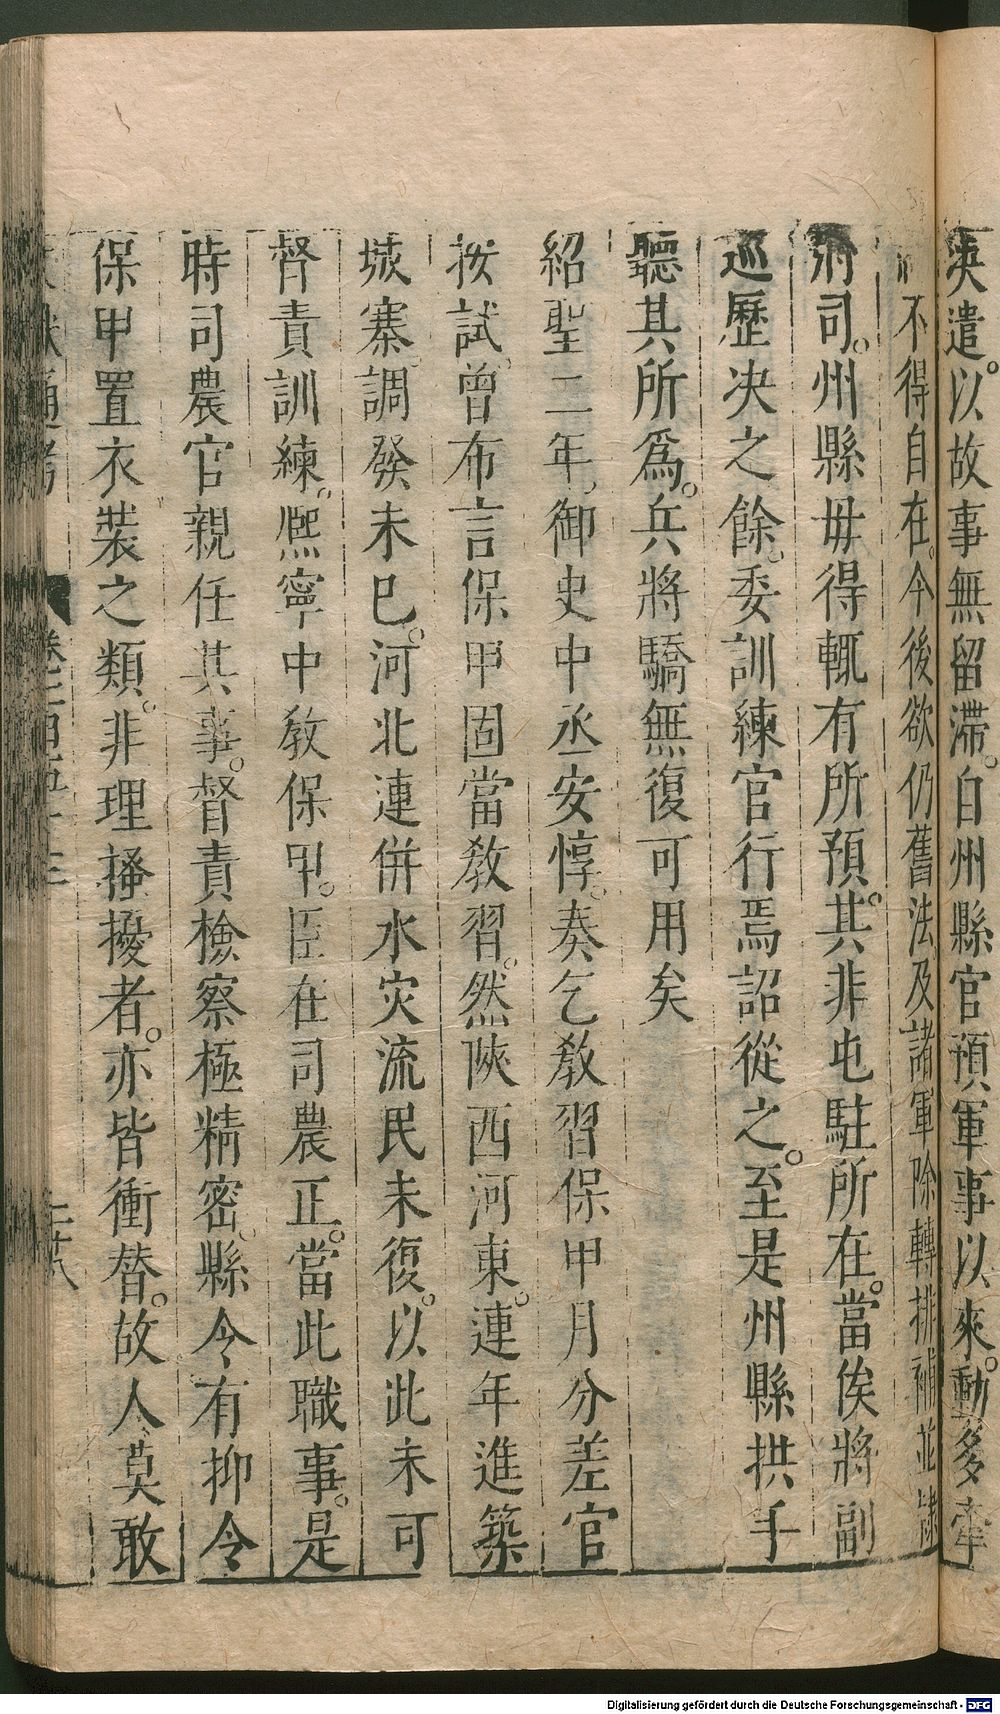 決遣。以故事無留滯。自州縣官預軍事以來。動多牽
不得自在。今後欲仍舊法及諸軍除轉排補並隸
將司。州縣毋得輒有所預。其非屯駐所在。當俟將副
巡歷决之餘。委訓練官行焉詔從之。至是州縣拱手
聽其所爲。兵將驕無復可用矣
紹聖二年。御史中丞安惇。奏乞教習保甲月分差官
按試。曾布言保甲固當教習。然陝西河東。連年進築
城寨。調發未巳。河北連併水灾流民未復。以此未可
督責訓練。熈寧中教保甲。臣在司農正。當此職事。是
時司農官親任其事。督責檢察極精密。縣令有抑令
保甲置衣裝之類。非理搔擾者。亦皆衝替。故人莫敢
通考 卷一百五十三 二十八
Digitalisierung gefördert durch die Deutsche Forschungsgemeinschaft - DFG